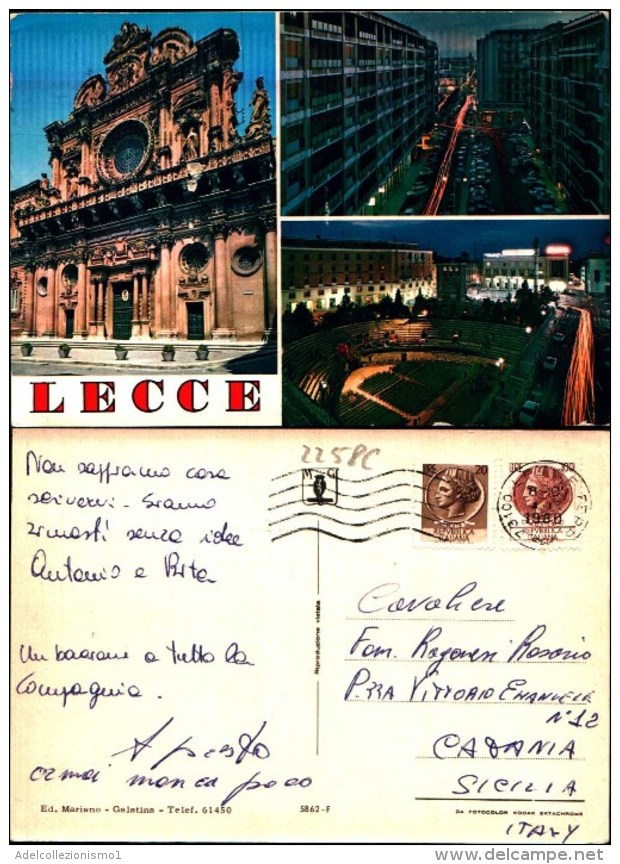 LECCE
2258C
Non sappiamo cosa
scrivervi - Siamo
rimasti senza idee
Antonio e Rita
Un bacione a tutta la
Compagnia.
A presto
ormai manca poco
LIRE 20
LIRE 100
REPUBBLICA
ITALIANA
REPUBBLICA
ITALIANA
73100
1980
Riproduzione vietata
Cavaliere
Fam. Ragonesi Rosario
P.zza Vittorio Emanuele
N° 12
CATANIA
SICILIA
ITALY
Ed. Mariano - Galatina - Telef. 61450
5862-F
DA FOTOCOLOR KODAK EKTACHROME
Adelcollezionismo1
http://www.delcampe.net